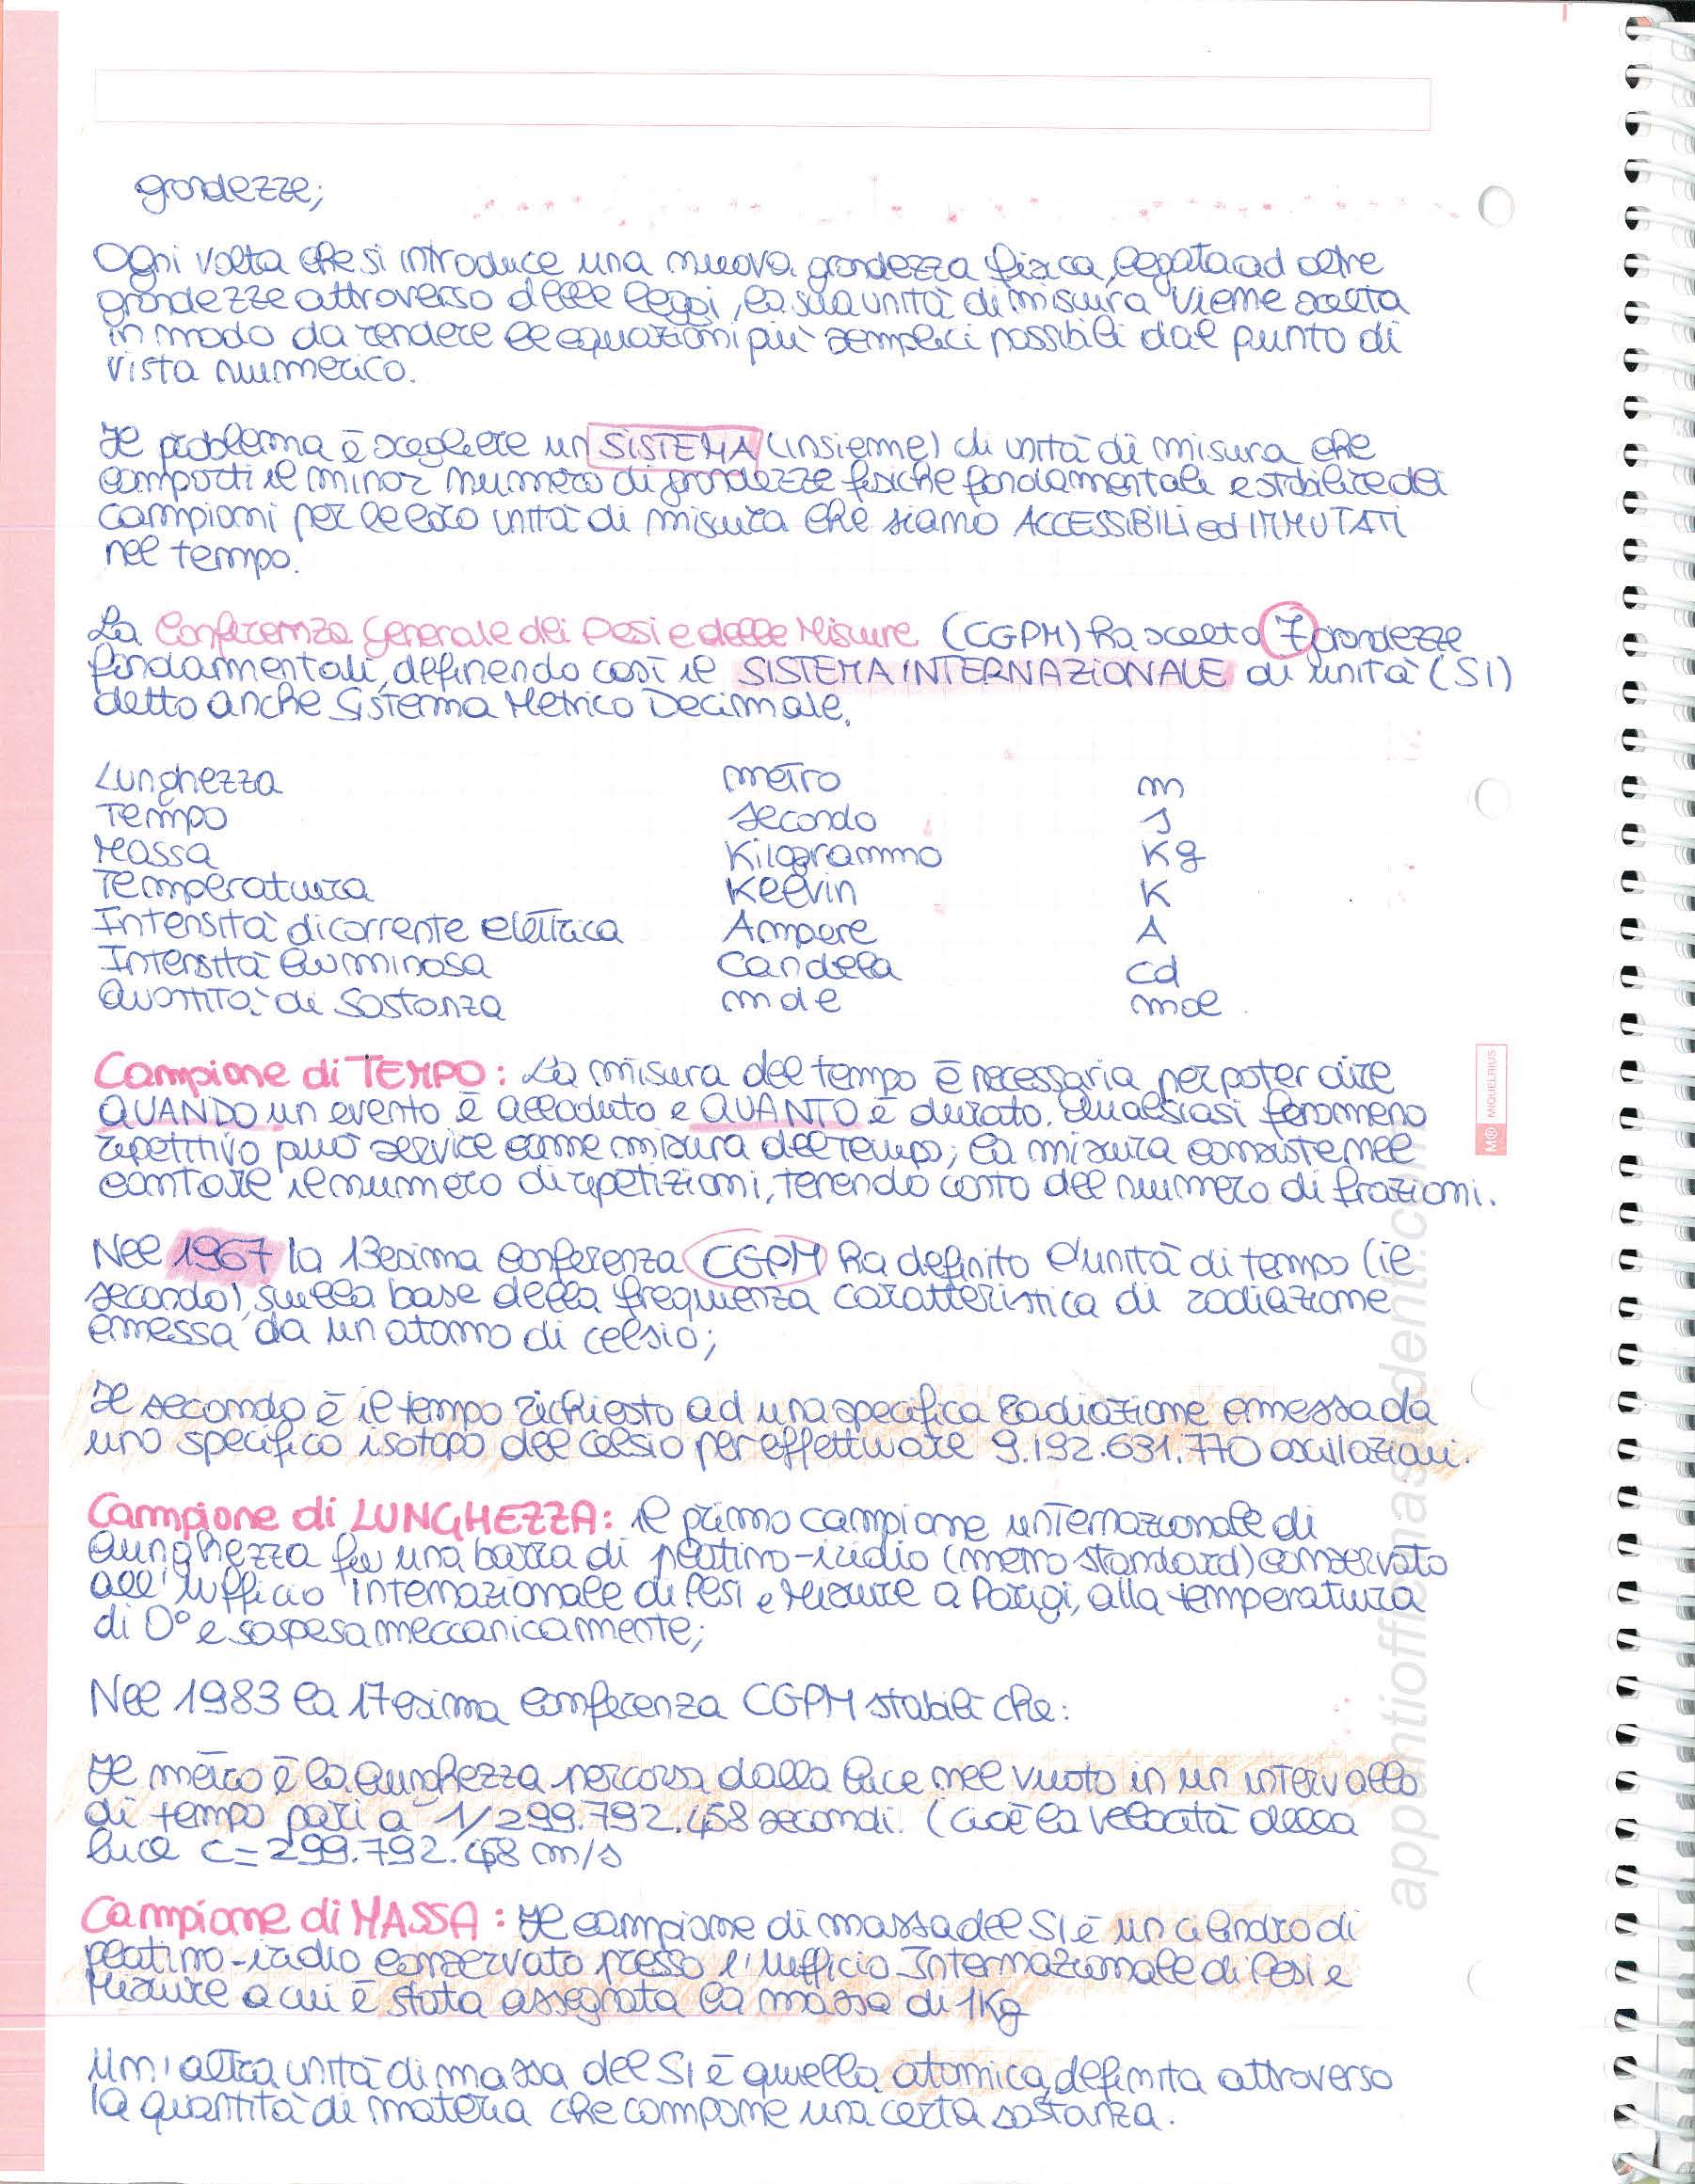 grandezze;
Ogni volta che si introduce una nuova grandezza fisica, legata ad altre
grandezze attraverso delle leggi, la sua unità di misura viene scelta
in modo da rendere le equazioni più semplici possibili dal punto di
vista numerico.
Il problema è scegliere un SISTEMA (insieme) di unità di misura che
comporti il minor numero di grandezze fisiche fondamentali e stabilire dei
campioni per le loro unità di misura che siano ACCESSIBILI ed IMMUTATI
nel tempo.
La Conferenza Generale dei Pesi e delle Misure (CGPM) ha scelto 7 grandezze
fondamentali, definendo così il SISTEMA INTERNAZIONALE di unità (SI)
detto anche Sistema Metrico Decimale.
Lunghezza metro m
Tempo secondo s
Massa Kilogrammo Kg
Temperatura Kelvin K
Intensità di corrente elettrica Ampere A
Intensità luminosa Candela cd
Quantità di Sostanza mole mol
Campione di TEMPO: La misura del tempo è necessaria per poter dire
QUANDO un evento è accaduto e QUANTO è durato. Qualsiasi fenomeno
repetitivo può service come misura del tempo; la misura consiste nel
contare il numero di ripetizioni, tenendo conto del numero di frazioni.
Nel 1967 la 13esima conferenza CGPM ha definito l'unità di tempo (il
secondo), sulla base della frequenza caratteristica di radiazione
emessa da un atomo di celsio;
Il secondo è il tempo richiesto ad una specifica radiazione emessa da
uno specifico isotopo del celsio per effettuare 9.192.631.770 oscillazioni.
Campione di LUNGHEZZA: il primo campione internazionale di
lunghezza fu una barra di platino-iridio (metro standard) conservato
all'ufficio Internazionale di Pesi e Misure a Parigi, alla temperatura
di 0° e sospesa meccanicamente;
Nel 1983 la 17esima conferenza CGPM stabilì che:
Il metro è la lunghezza percorsa dalla luce nel vuoto in un intervallo
di tempo pari a 1/299.792.458 secondi. (cioè la velocità della
luce c = 299.792.458 m/s
Campione di MASSA: Il campione di massa del SI è un cilindro di
platino-iridio conservato presso l'ufficio Internazionale di Pesi e
Misure a cui è stata assegnata la massa di 1Kg
Un'altra unità di massa del SI è quella atomica, definita attraverso
la quantità di materia che compone una certa sostanza.
M® MIQUELRIUS